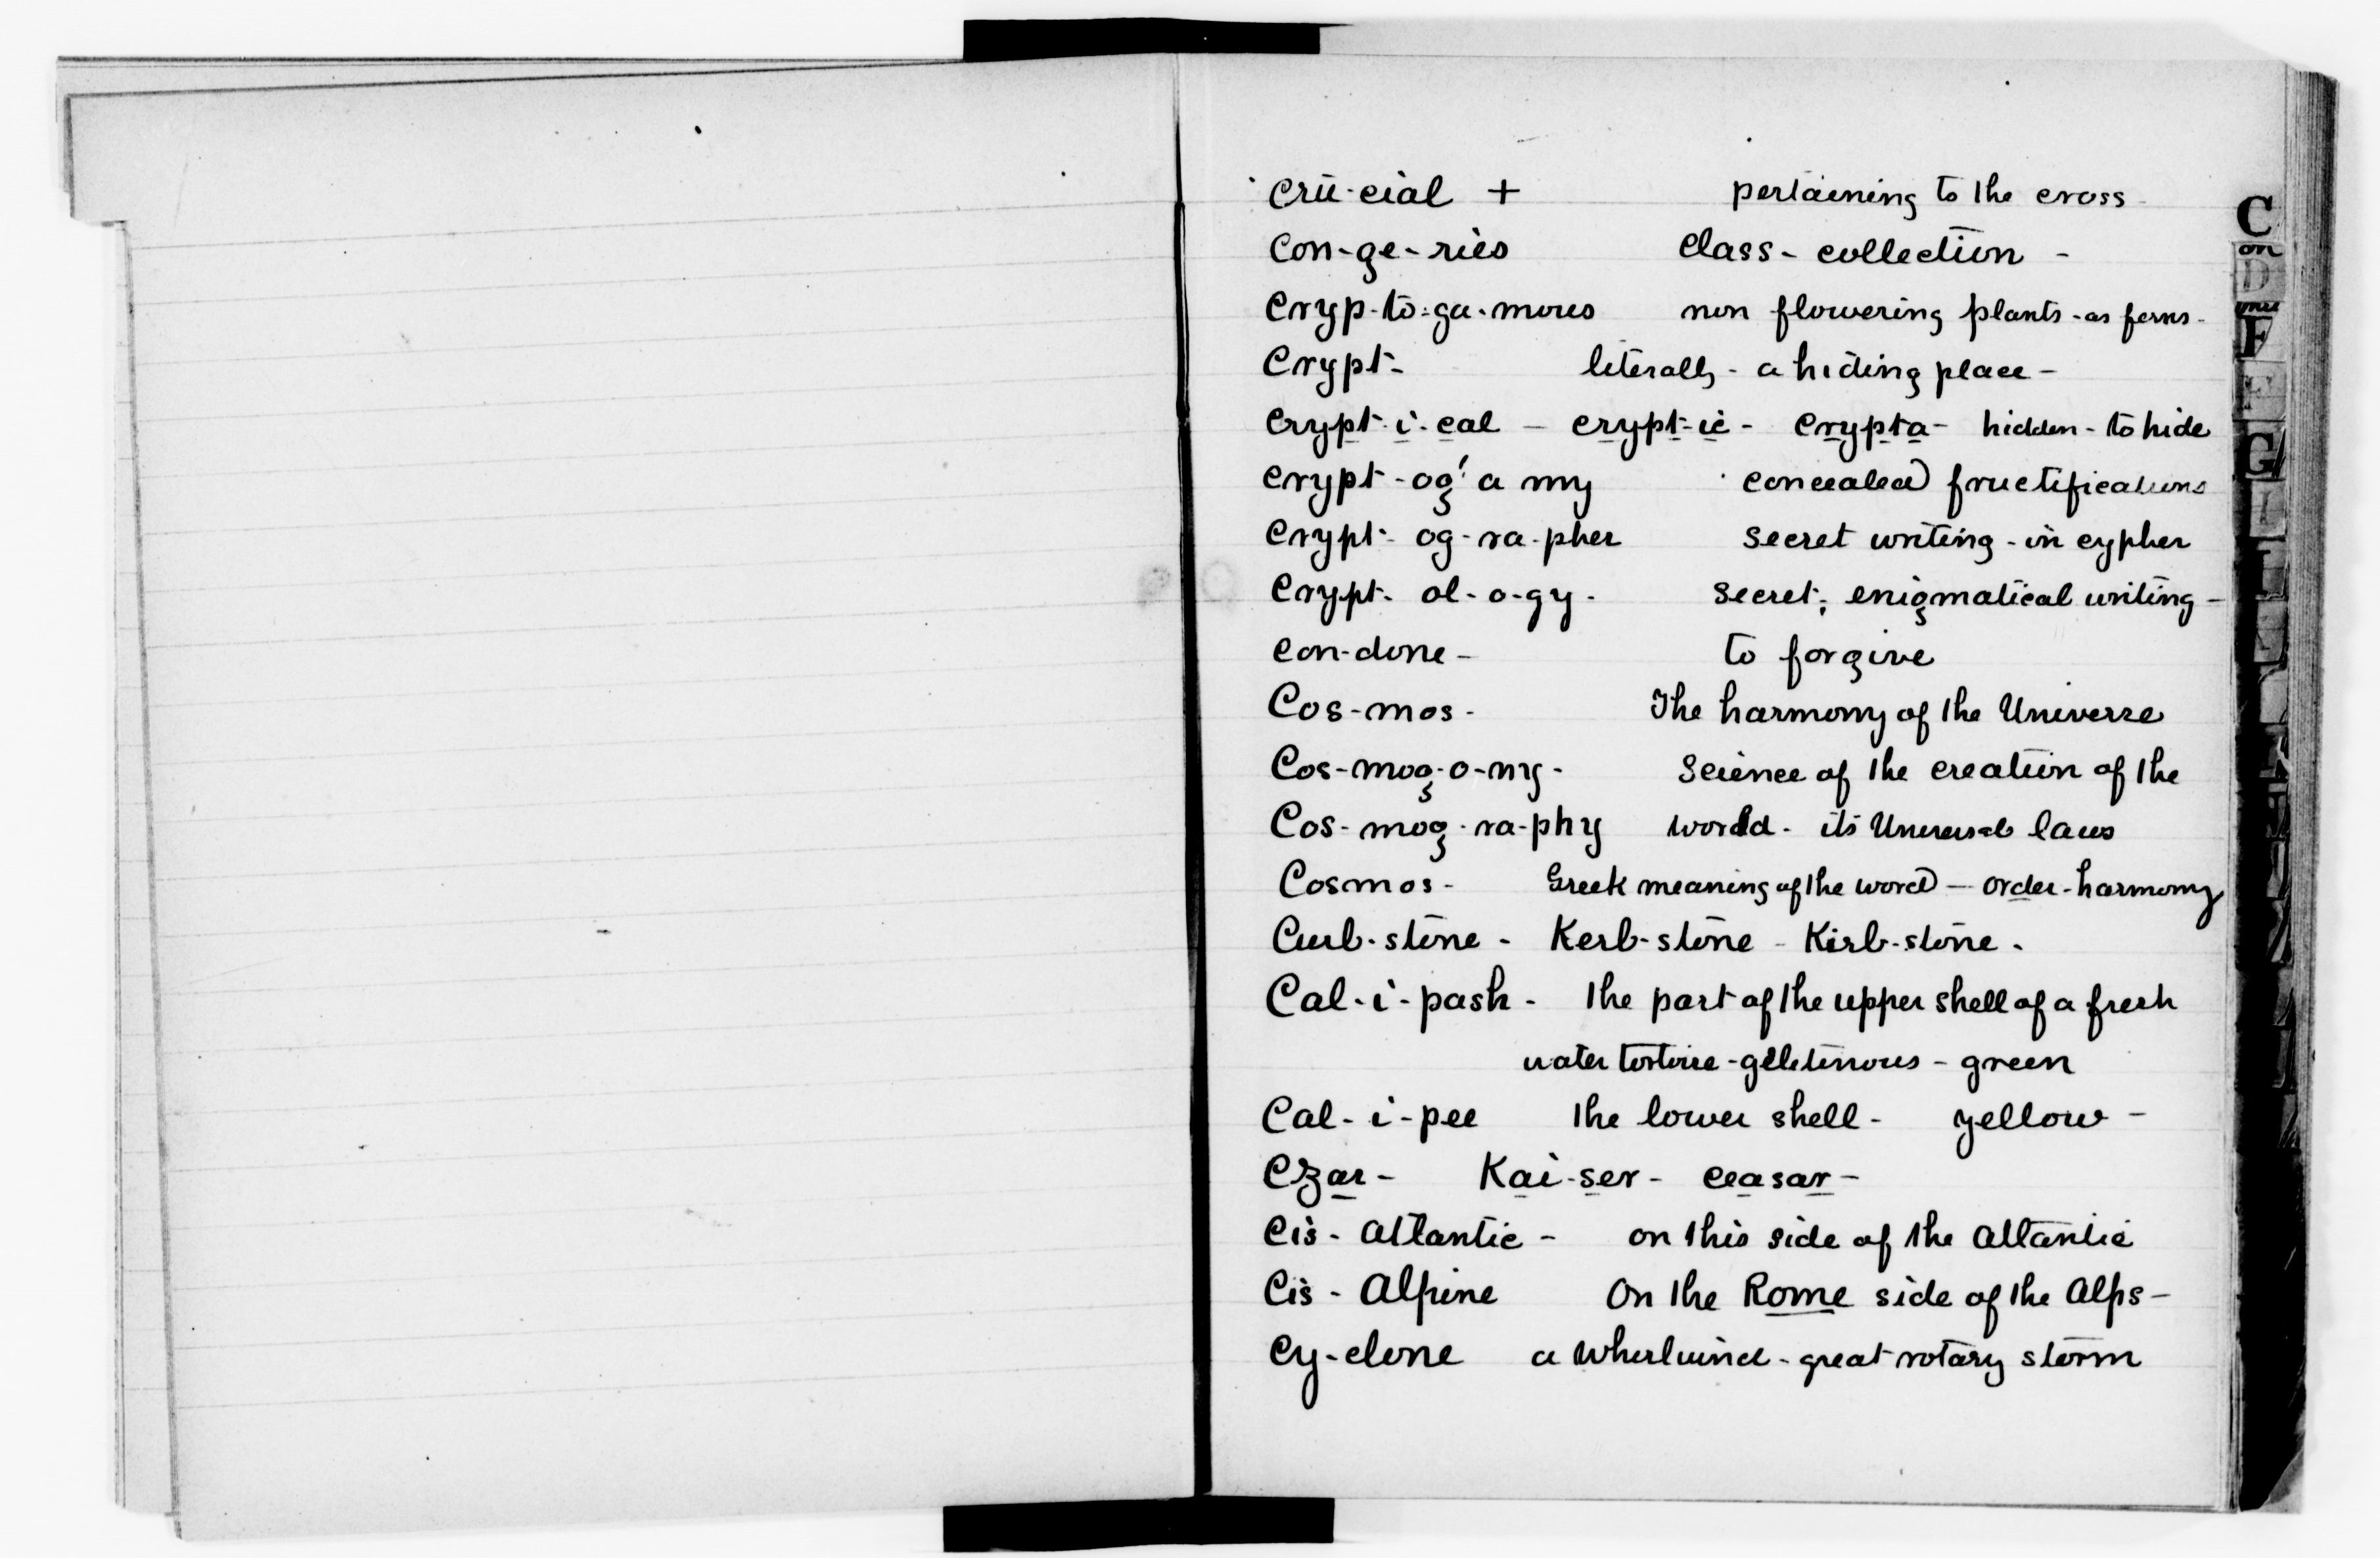 Crū-cial + pertaining to the cross
Con-ge-ries Class - collection -
Cryp-to-ga-mous non flowering plants - as ferns -
Crypt- literally - a hiding place -
Crypt-i-cal - crypt-ic - Crypta - hidden - to hide
Crypt-og' a my concealed fructifications
Crypt- og-ra-pher secret writing - in cypher
Crypt- ol-o-gy - secret, enigmatical writing -
con-done - to forgive
Cos-mos - The harmony of the Universe
Cos-mog-o-ny - Science of the creation of the
Cos-mog-ra-phy world - its Universal laws
Cosmos - Greek meaning of the word - order - harmony
Curb-stone - Kerb-stone - Kirb-stone -
Cal-i-pash - the part of the upper shell of a fresh
water tortoise - gelletinous - green
Cal-i-pee the lower shell - yellow -
Czar - Kai-ser - ceasar -
Cis - Atlantic - on this side of the Atlantic
Cis - Alpine On the Rome side of the Alps -
Cy-clone a wherlwind - great rotary storm
C
on
D
F
G